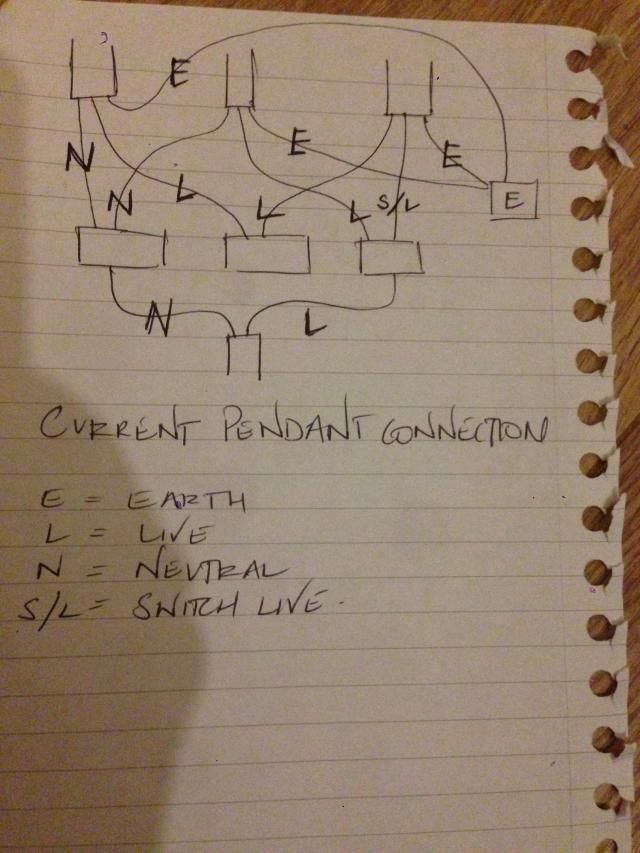 E
E
E
N
N
L
L
L
S/L
E
N
L
CURRENT PENDANT CONNECTION
E = EARTH
L = LIVE
N = NEUTRAL
S/L = SWITCH LIVE.